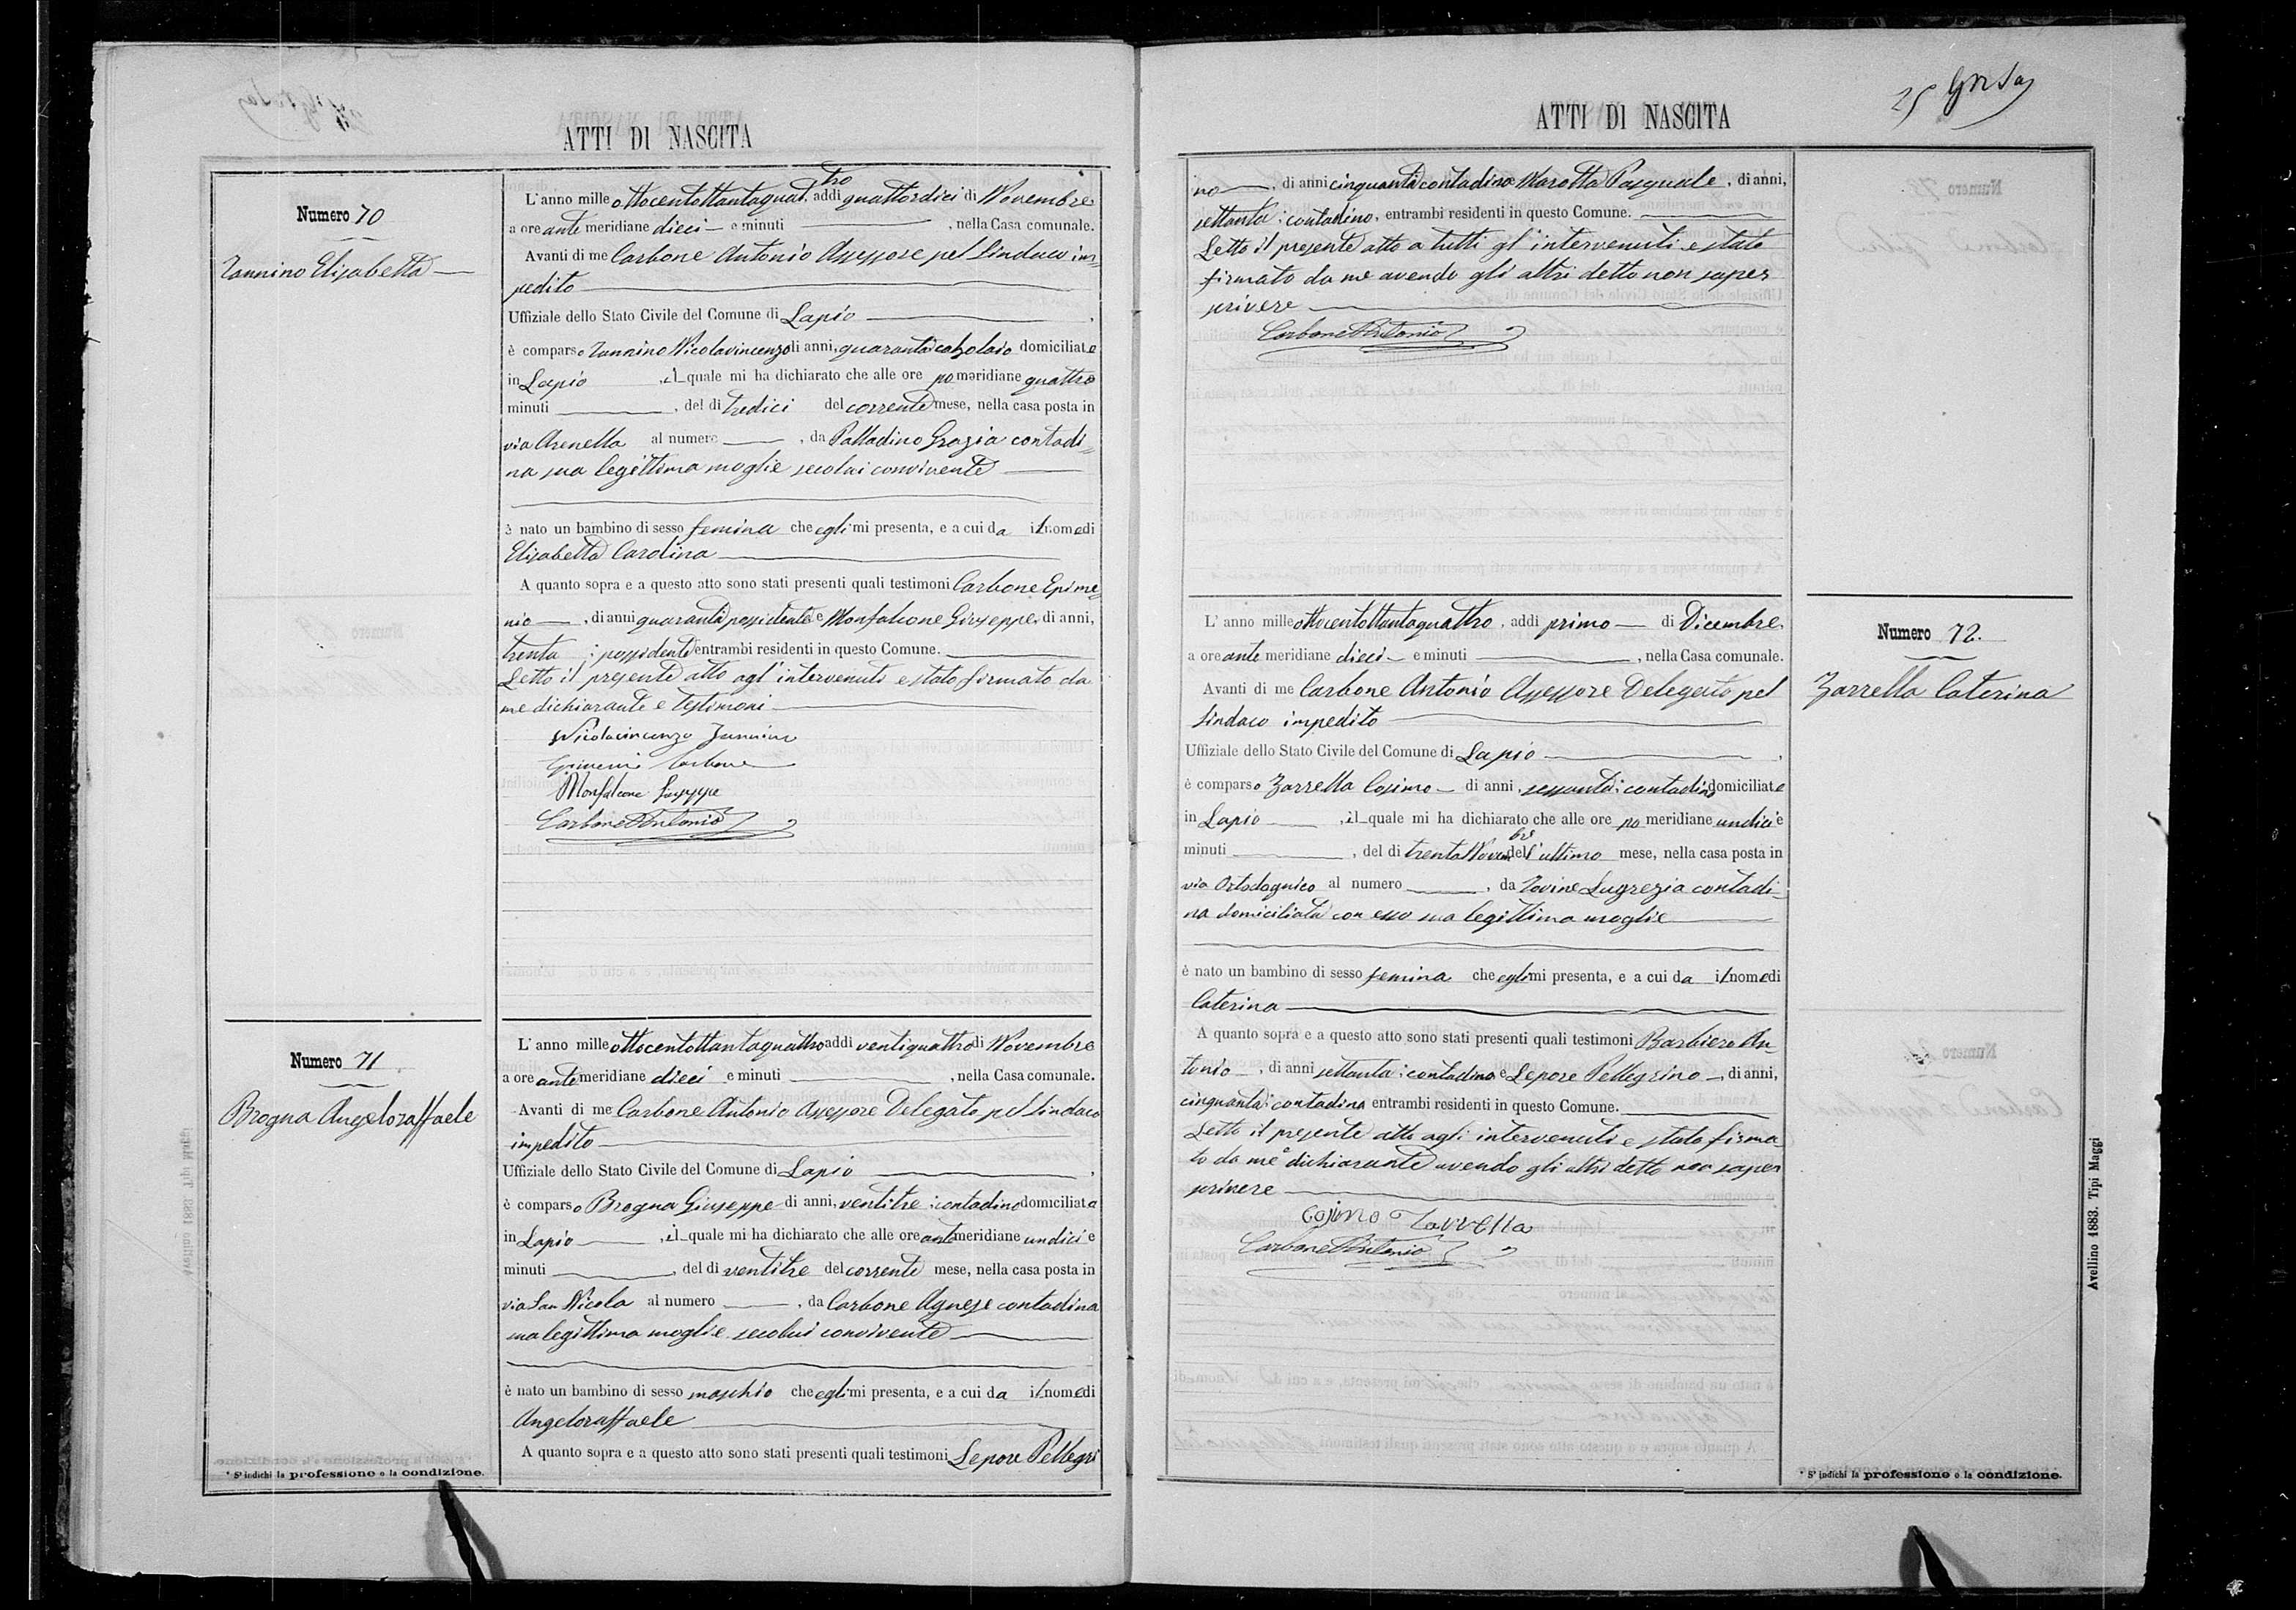 ATTI DI NASCITA
Numero 70
Iannino Elisabetta
L'anno mille ottocentottantaquattro, addi quattordici di Novembre
a ore ante meridiane dieci e minuti , nella Casa comunale.
Avanti di me Carbone Antonio Assessore pel Sindaco im-
pedito
Uffiziale dello Stato Civile del Comune di Lapio ,
è comparso Iannino Nicolavincenzo di anni, quaranta calzolaio domiciliato
in Lapio , il quale mi ha dichiarato che alle ore po meridiane quattro
minuti , del dì tredici del corrente mese, nella casa posta in
via Arenella al numero , da Palladino Grazia contadi-
na sua legittima moglie secolui convivente
è nato un bambino di sesso femina che egli mi presenta, e a cui da il nome di
Elisabetta Carolina
A quanto sopra e a questo atto sono stati presenti quali testimoni Carbone Epime-
nio , di anni quaranta possidente e Monfalcone Giuseppe, di anni,
trenta ; possidente entrambi residenti in questo Comune.
Letto il presente atto agl'intervenuti e stato firmato da
me dichiarante e testimoni
Nicolavincenzo Iannino
Carbone
Monfalcone Giuseppe
Carbone Antonio
Numero 71
Brogna Angeloraffaele
L'anno mille ottocentottantaquattro addi ventiquattro di Novembre
a ore ante meridiane dieci e minuti , nella Casa comunale.
Avanti di me Carbone Antonio Assessore Delegato pel Sindaco
impedito
Uffiziale dello Stato Civile del Comune di Lapio ,
è comparso Brogna Giuseppe di anni, ventitre ; contadino domiciliato
in Lapio , il quale mi ha dichiarato che alle ore ante meridiane undici e
minuti , del dì ventitre del corrente mese, nella casa posta in
via San Nicola al numero , da Carbone Agnese contadina
sua legittima moglie secolui convivente
è nato un bambino di sesso maschio che egli mi presenta, e a cui da il nome di
Angeloraffaele
A quanto sopra e a questo atto sono stati presenti quali testimoni Lepore Pellegri
* S'indichi la professione o la condizione.
25
ATTI DI NASCITA
no , di anni cinquanta contadino e Marotta Pasquale , di anni,
settanta ; contadino, entrambi residenti in questo Comune.
Letto il presente atto a tutti gl'intervenuti e stato
firmato da me avendo gli altri detto non saper
scrivere
Carbone Antonio
Numero 72.
Zarrella Caterina
L'anno mille ottocentottantaquattro, addi primo di Dicembre
a ore ante meridiane dieci e minuti , nella Casa comunale.
Avanti di me Carbone Antonio Assessore Delegato pel
Sindaco impedito
Uffiziale dello Stato Civile del Comune di Lapio ,
è comparso Zarrella Cosimo di anni, sessanta ; contadino domiciliato
in Lapio , il quale mi ha dichiarato che alle ore po meridiane undici e
minuti , del dì trenta Novembre dell'ultimo mese, nella casa posta in
via Ortodognico al numero , da Iovine Lugrezia contadi-
na domiciliata con esso sua legittima moglie
è nato un bambino di sesso femina che egli mi presenta, e a cui da il nome di
Caterina
A quanto sopra e a questo atto sono stati presenti quali testimoni Barbiero An-
tonio , di anni settanta ; contadino e Lepore Pellegrino , di anni,
cinquanta ; contadino entrambi residenti in questo Comune.
Letto il presente atto agli intervenuti e stato firma
to da me e dichiarante avendo gli altri detto non saper
scrivere
Cosimo Zarrella
Carbone Antonio
* S'indichi la professione o la condizione.
Avellino 1883. Tipi Maggi